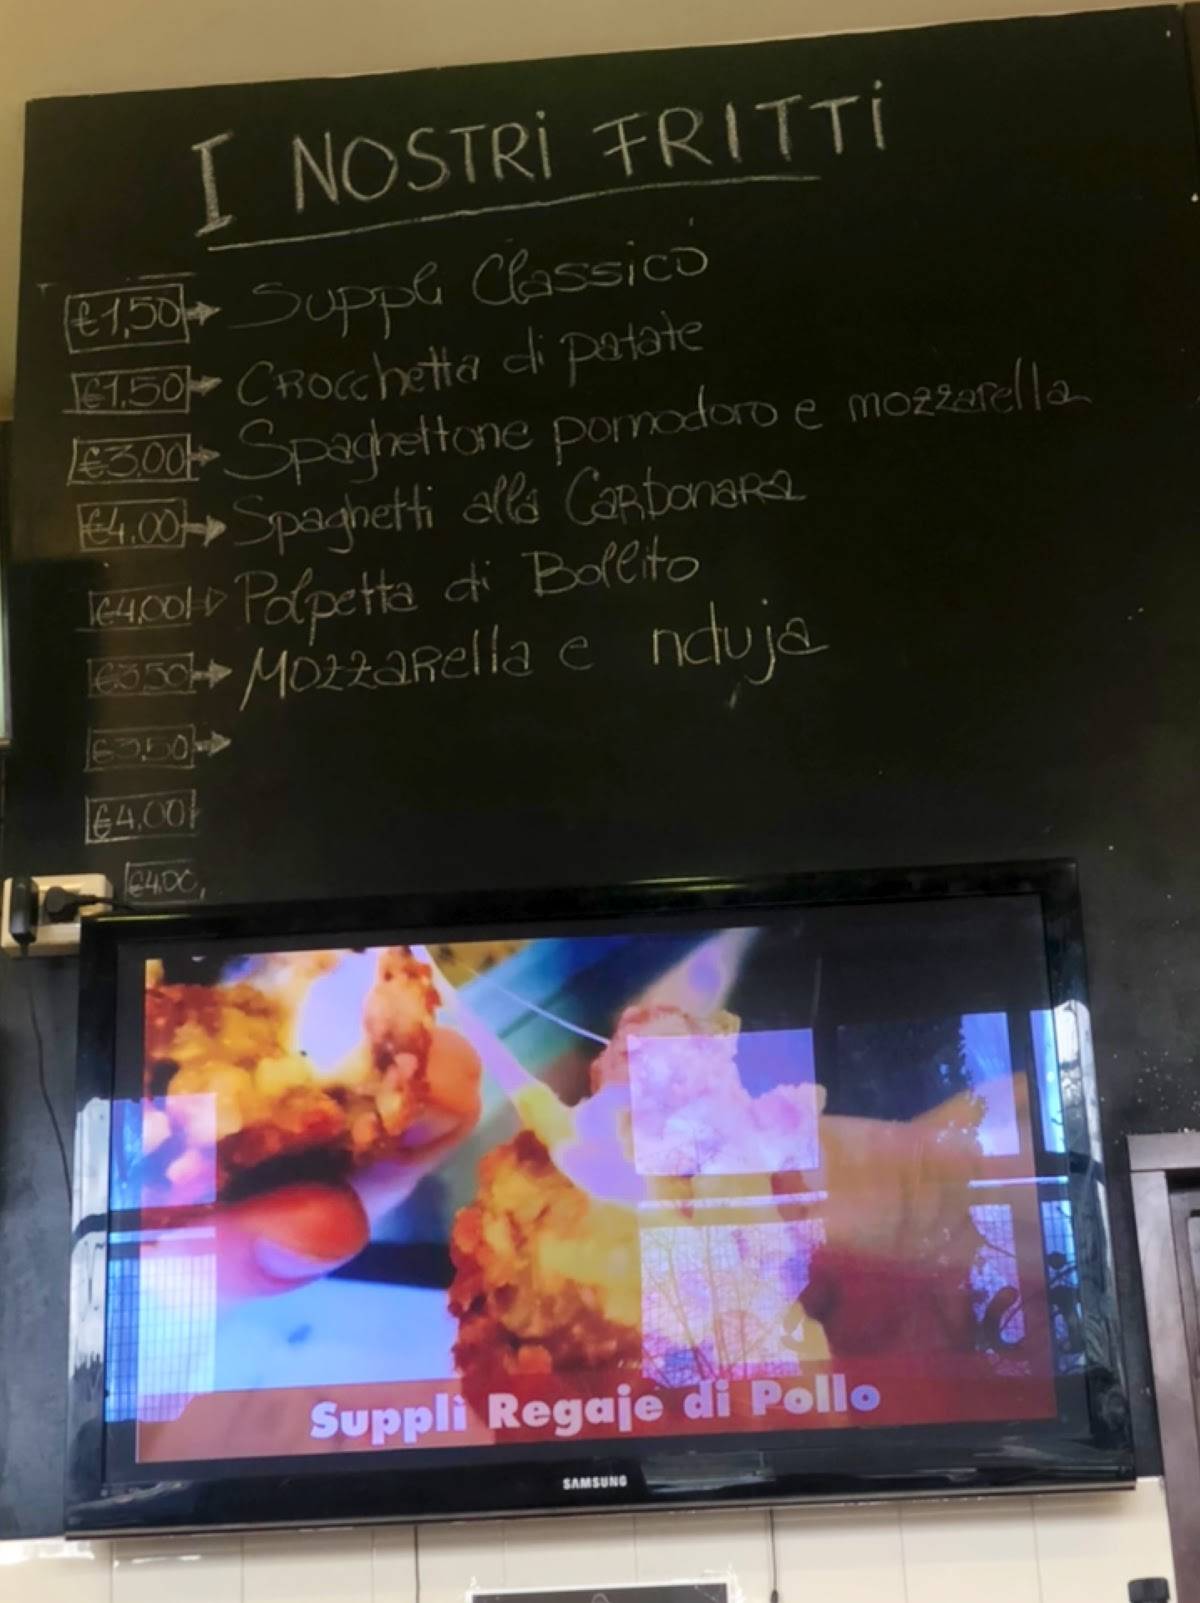 I NOSTRi FRITTi
€1,50 → Suppli Classico
€1.50 → CROCChetta di patate
€3.00 → Spaghettone pomodoro e mozzarella
€4.00 → Spaghetti alla CaRbonaRa
€4,00 → Polpetta di Bollito
€3.50 → MOZZaRella e nduja
€3.50 →
€4,00
€4.00
Supplì Regaje di Pollo
SAMSUNG